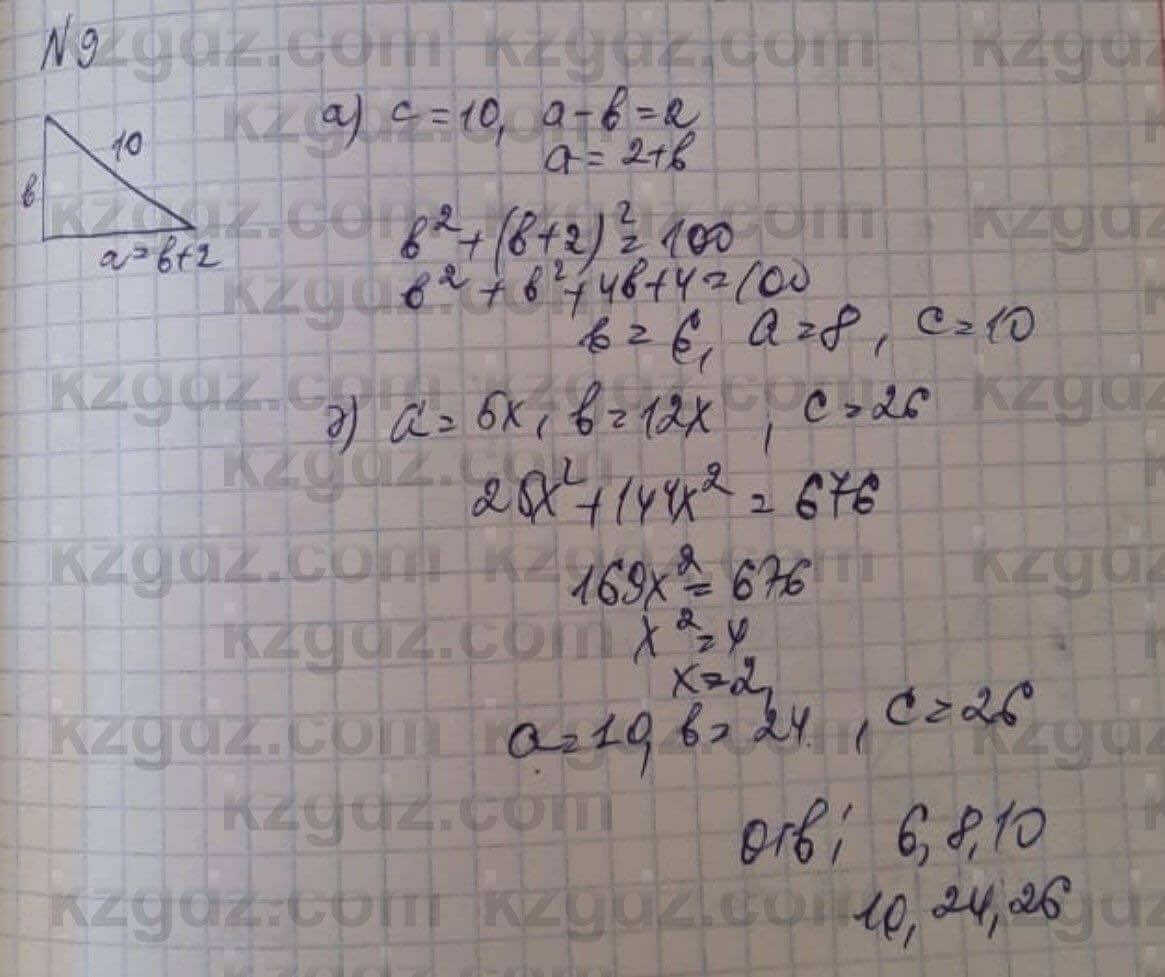 N 9
а) c = 10, a - b = 2
a = 2+b
10
b
a = b+2
b² + (b+2)² = 100
b² + b² + 4b + 4 = 100
b = 6, a = 8, c = 10
б) a = 5x, b = 12x, c = 26
25x² + 144x² = 676
169x² = 676
x² = 4
x = 2,
a = 10, b = 24, c = 26
отв: 6, 8, 10
10, 24, 26
kzgdz.com